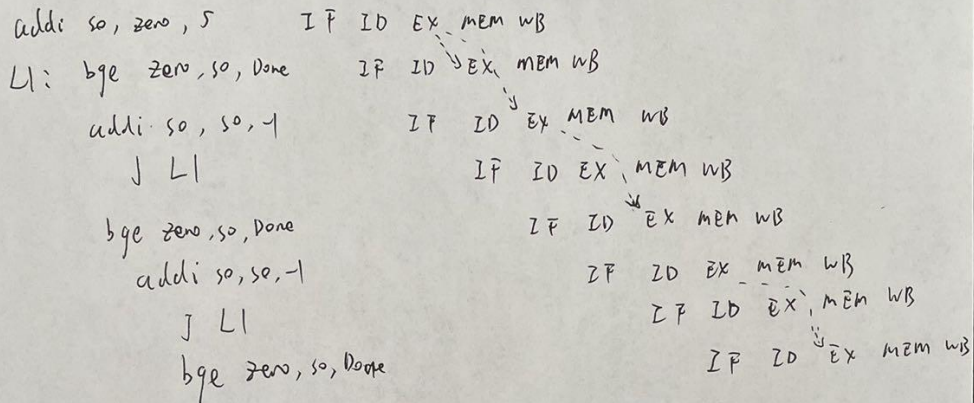 addi so, zero, 5 IF ID EX MEM WB
L1: bge zero, so, Done IF ID EX MEM WB
addi so, so, -1 IF ID EX MEM WB
J L1 IF ID EX MEM WB
bge zero, so, Done IF ID EX MEM WB
addi so, so, -1 IF ID EX MEM WB
J L1 IF ID EX MEM WB
bge zero, so, Done IF ID EX MEM WB